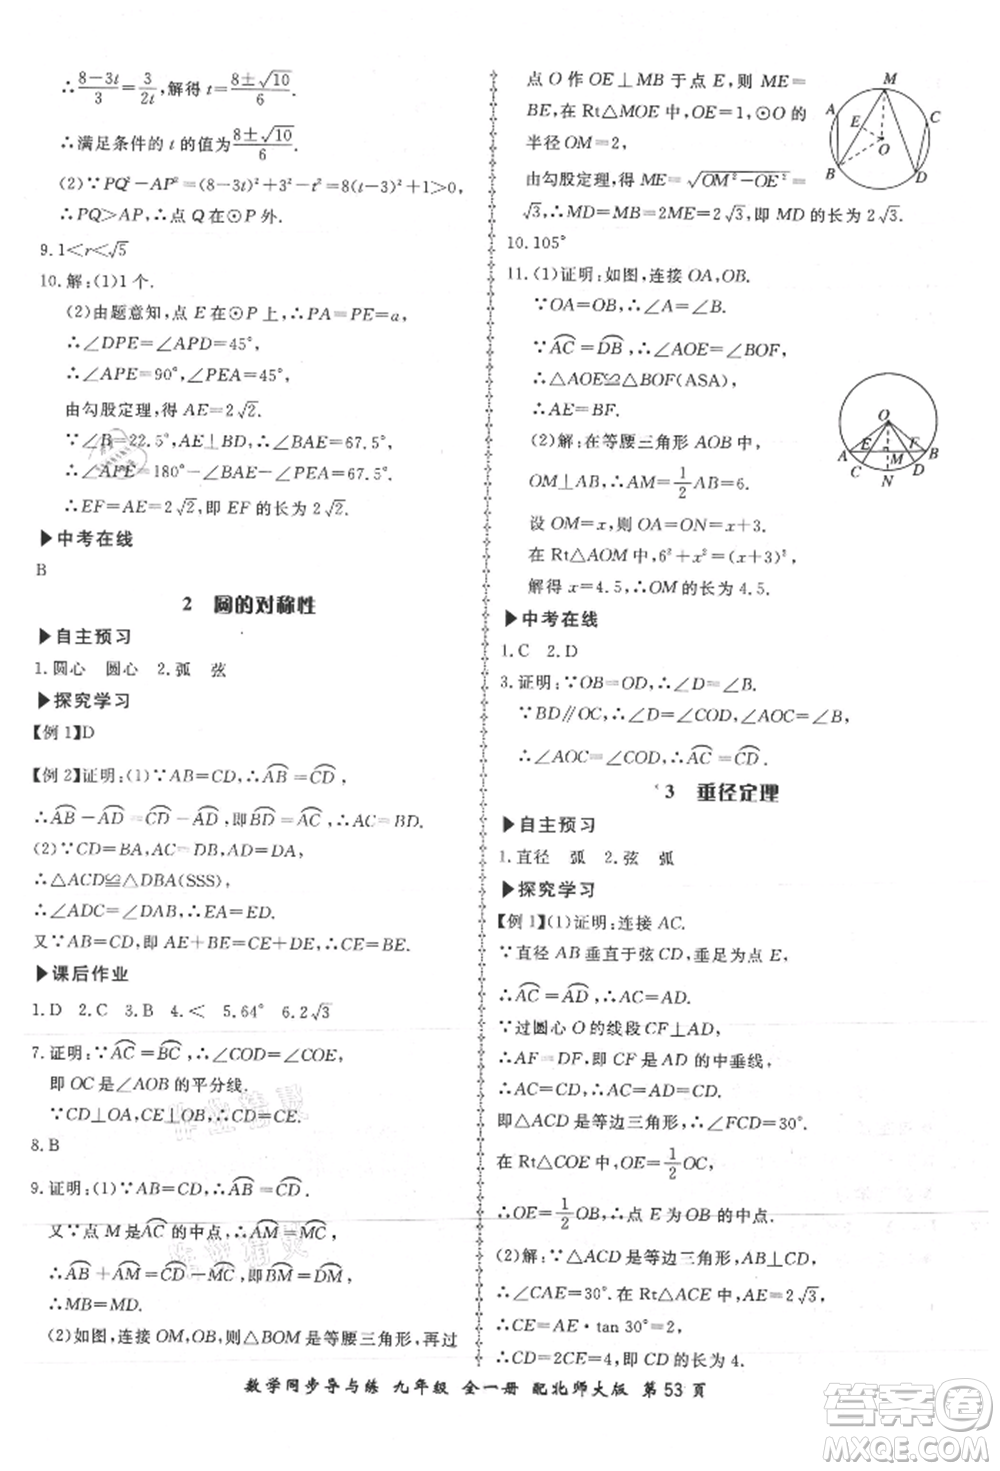 ∴(8-3t)/3=3/(2t),解得 t=(8±√10)/6.
∴满足条件的 t 的值为(8±√10)/6.
(2)∵PQ²-AP²=(8-3t)²+3²-t²=8(t-3)²+1>0,
∴PQ>AP,∴点 Q 在⊙P 外.
9.1<r<√5
10.解:(1)1个.
(2)由题意知,点 E 在⊙P 上,∴PA=PE=a,
∴∠DPE=∠APD=45°,
∴∠APE=90°,∠PEA=45°,
由勾股定理,得 AE=2√2.
∵∠B=22.5°,AE⊥BD,∴∠BAE=67.5°,
∴∠APE=180°-∠BAE-∠PEA=67.5°
∴EF=AE=2√2,即 EF 的长为 2√2.
▶中考在线
B
2 圆的对称性
▶自主预习
1.圆心 圆心 2.弧 弦
▶探究学习
【例1】D
【例2】证明:(1)∵AB=CD,∴AB⌒=CD⌒,
∴AB⌒-AD⌒=CD⌒-AD⌒,即BD⌒=AC⌒,∴AC=BD.
(2)∵CD=BA,AC=DB,DA=DA,
∴△ACD≌△DBA(SSS),
∴∠ADC=∠DAB,∴EA=ED.
又∵AB=CD,即 AE+BE=CE+ED,∴CE=BE.
▶课后作业
1.D 2.C 3.B 4.< 5.64° 6.2√3
7.证明:∵AC⌒=BC⌒,∴∠COD=∠COE,
即 OC 是∠AOB 的平分线.
∵CD⊥OA,CE⊥OB,∴CD=CE.
8.B
9.证明:(1)∵AB=CD,∴AB⌒=CD⌒.
又∵点 M 是AC⌒的中点,∴AM⌒=MC⌒,
∴AB⌒+AM⌒=CD⌒+MC⌒,即BM⌒=DM⌒,
∴MB=MD.
(2)如图,连接 OM,OB,则△BOM 是等腰三角形,再过
点 O 作 OE⊥MB 于点 E,则 ME=
BE,在 Rt△MOE 中,OE=1,⊙O 的
半径 OM=2,
由勾股定理,得 ME=√(OM²-OE²)=
√3,∴MD=MB=2ME=2√3,即 MD 的长为 2√3.
M
A
C
E
O
B
D
10.105°
11.(1)证明:如图,连接 OA,OB.
∵OA=OB,∴∠A=∠B,
∵AC⌒=BD⌒,∴∠AOE=∠BOF,
∴△AOE≌△BOF(ASA),
∴AE=BF.
(2)解:在等腰三角形 AOB 中,
OM⊥AB,∴AM=1/2AB=6.
设 OM=x,则 OA=ON=x+3,
在 Rt△AOM 中,6²+x²=(x+3)²,
解得 x=4.5,∴OM 的长为 4.5.
O
A E M F B
C N D
▶中考在线
1.C 2.D
3.证明:∵OB=OD,∴∠D=∠B,
∵BD∥OC,∴∠D=∠COD,∠AOC=∠B,
∴∠AOC=∠COD,∴AC⌒=CD⌒.
3 垂径定理
▶自主预习
1.直径 弧 2.弦 弧
▶探究学习
【例1】(1)证明:连接 AC.
∵直径 AB 垂直于弦 CD,垂足为点 E,
∴AC⌒=AD⌒,∴AC=AD.
∵过圆心 O 的线段 CF⊥AD,
∴AF=DF,即 CF 是 AD 的中垂线,
∴AC=CD,∴AC=AD=CD,
即△ACD 是等边三角形,∴∠FCD=30°.
在 Rt△COE 中,OE=1/2OC,
∴OE=1/2OB,∴点 E 为 OB 的中点.
(2)解:∵△ACD 是等边三角形,AB⊥CD,
∴∠CAE=30°.在 Rt△ACE 中,AE=2√3,
∴CE=AE·tan 30°=2,
∴CD=2CE=4.
数学同步导与练 九年级 全一册 配北师大版 第53页
答案圈
MXQE.COM